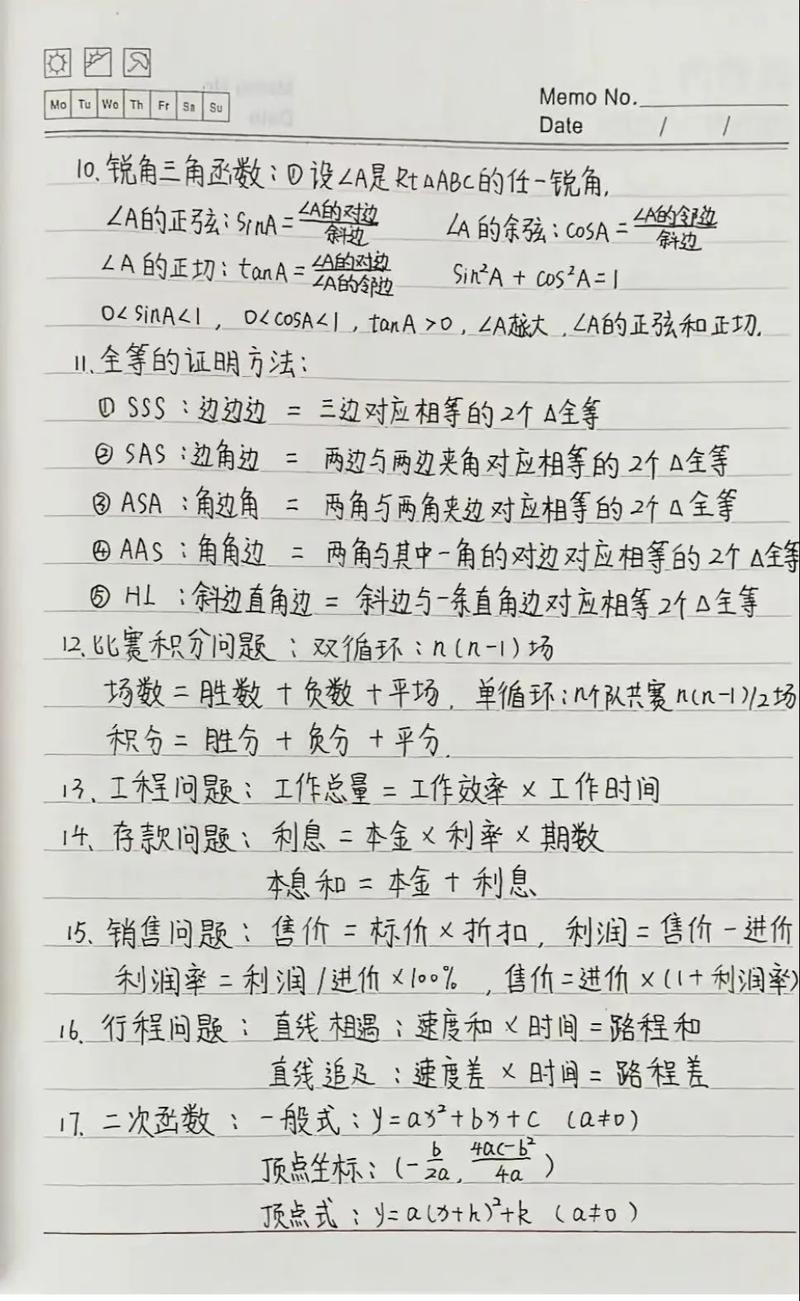 Mo Tu We Th Fr Sa Su
Memo No.
Date / /
10. 锐角三角函数：① 设∠A是Rt△ABC的任一锐角,
∠A的正弦：sinA=∠A的对边/斜边 ∠A的余弦：cosA=∠A的邻边/斜边
∠A的正切：tanA=∠A的对边/∠A的邻边 sin²A + cos²A=1
0<sinA<1, 0<cosA<1, tanA>0, ∠A越大, ∠A的正弦和正切.
11. 全等的证明方法：
① SSS：边边边 = 三边对应相等的2个△全等
② SAS：边角边 = 两边与两边夹角对应相等的2个△全等
③ ASA：角边角 = 两角与两角夹边对应相等的2个△全等
④ AAS：角角边 = 两角与其中一角的对边对应相等的2个△全等
⑤ HL：斜边直角边 = 斜边与一条直角边对应相等2个△全等
12. 比赛积分问题：双循环：n(n-1)场
场数=胜数+负数+平场, 单循环：n个队共赛n(n-1)/2场
积分=胜分+负分+平分.
13、工程问题：工作总量=工作效率×工作时间
14、存款问题：利息=本金×利率×期数
本息和=本金+利息
15、销售问题：售价=标价×折扣, 利润=售价-进价
利润率=利润/进价×100%, 售价=进价×(1+利润率)
16、行程问题：直线相遇：速度和×时间=路程和
直线追及：速度差×时间=路程差
17. 二次函数：一般式：y=ax²+bx+c (a≠0)
顶点坐标：(-b/2a, 4ac-b²/4a)
顶点式：y=a(x+h)²+k (a≠0)